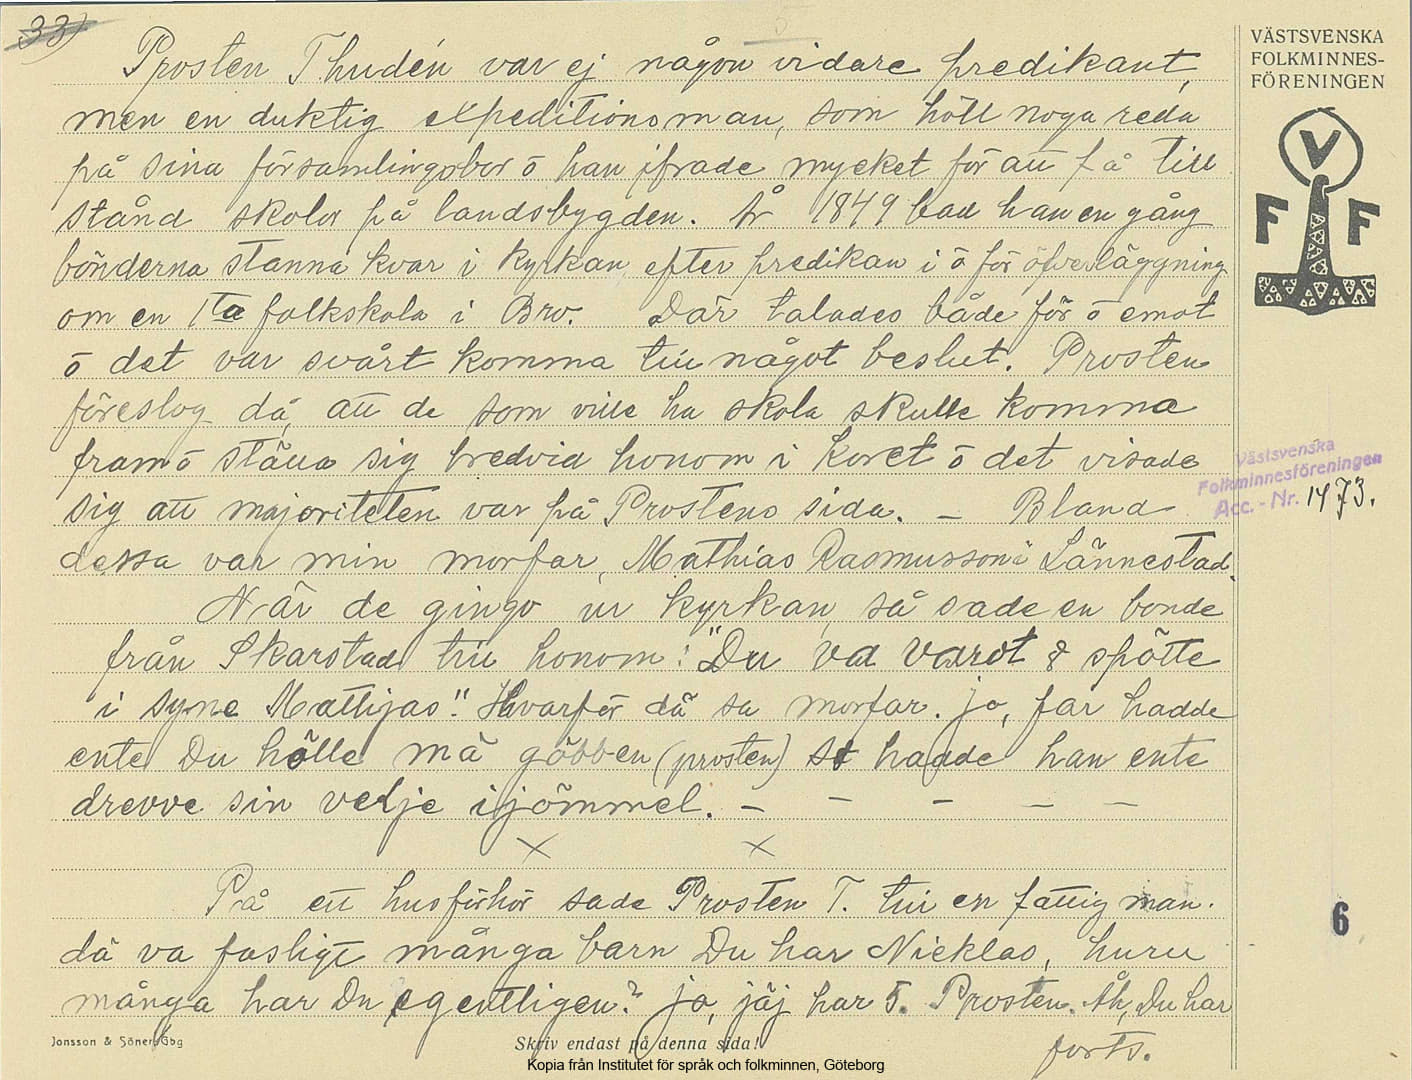 33)
Prosten Thudén var ej någon vidare predikant,
men en duktig expeditionsman, som höll noga reda
på sina församlingsbor ō han ifrade mycket för att få till
stånd skolor på landsbygden. År 1849 bad han en gång
bönderna stanna kvar i kyrkan efter predikan i ō för öfverläggning
om en 1ta folkskola i Bro. Där talades både för ō emot
ō det var svårt komma till något beslut. Prosten
föreslog då, att de som ville ha skola skulle komma
fram ō ställa sig bredvid honom i koret ō det visade
sig att majoriteten var på Prostens sida. – Bland
dessa var min morfar, Mathias Rasmusson i Lännestad.
När de gingo ur kyrkan, så sade en bonde
från Skarstad till honom: "Du va vardt å spötte
i syne Mattijas". Hvarför då sa morfar. jo, far hadde
ente Du hölle mä göbben (prosten) så hadde han ente
drevve sin velje ijömmel. – – – – –
× ×
På ett husförhör sade Prosten T. till en fattig man.
dä va fasligt många barn Du har Nicklas, huru
många har Du egentligen? jo, jäj har 5. Prosten. Åh, Du har
forts.
VÄSTSVENSKA
FOLKMINNES-
FÖRENINGEN
V
F F
Västsvenska
Folkminnesföreningen
Acc.-Nr. 1473.
6
Jonsson & Söner, Gbg
Skriv endast på denna sida!
Kopia från Institutet för språk och folkminnen, Göteborg